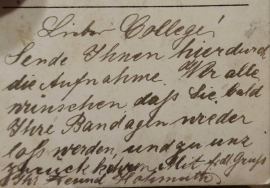 Lieber College!
Sende Ihnen hierdurch
die Aufnahme. Wir alle
wünschen daß Sie bald
Ihre Bandagen wieder
loß werden, und zu uns
zurück kehren. Mit frdl. Gruß
Ihr Freund